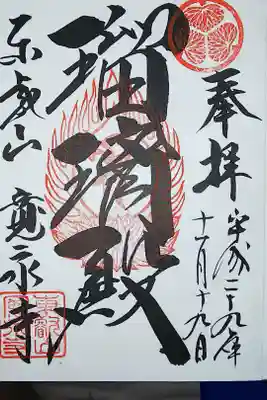 奉拝
平成二十九年
十一月十九日
瑠璃殿
東叡山
寛永寺